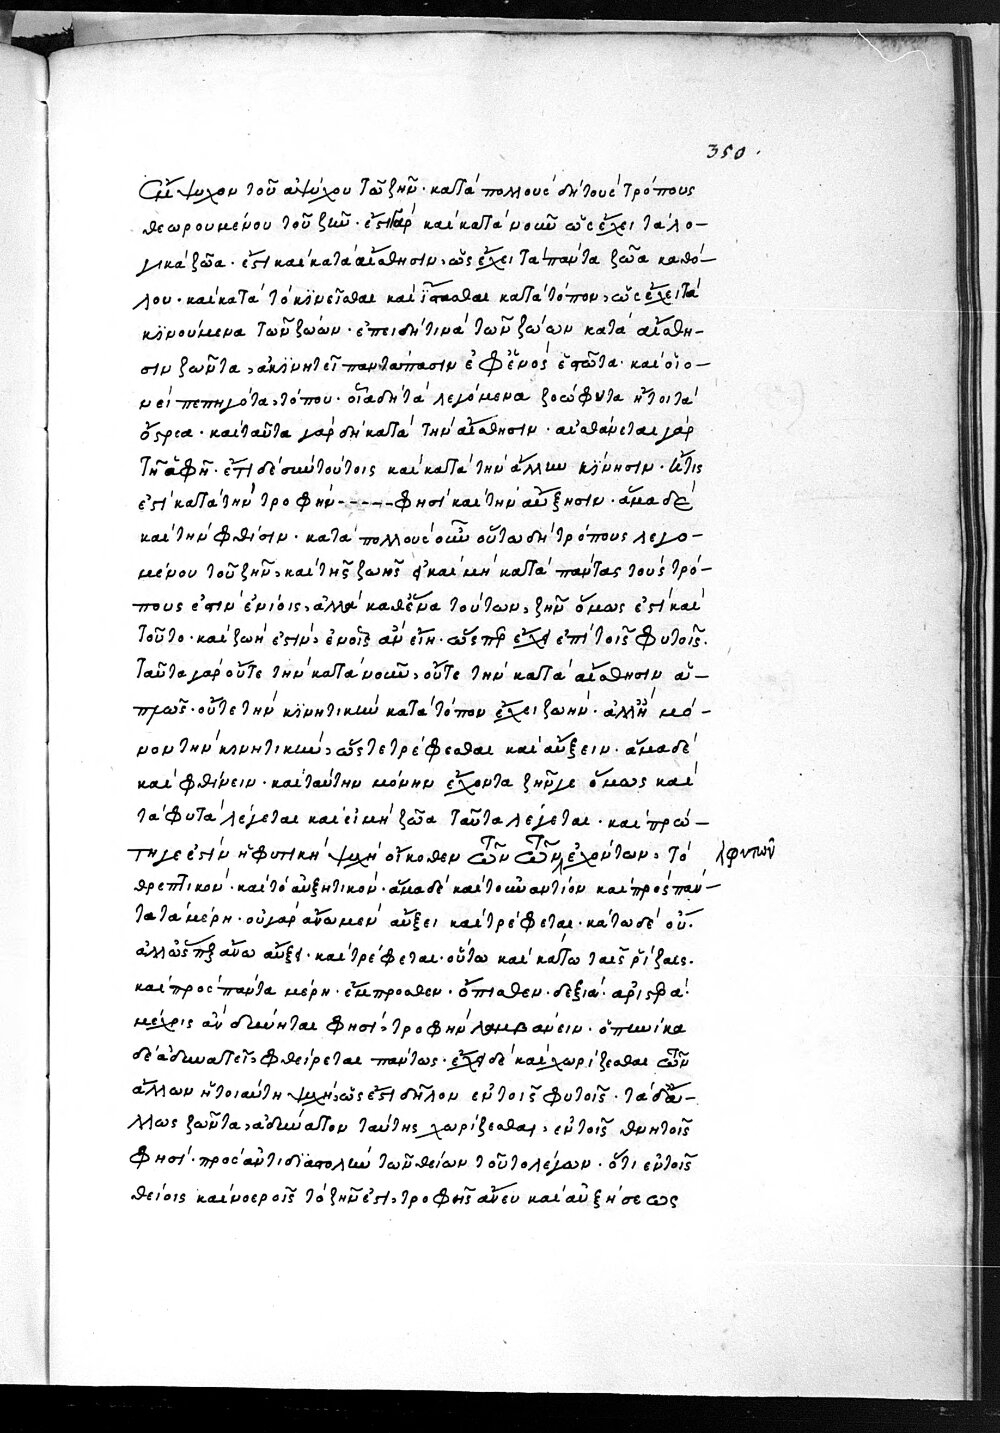 350.
ἔμψυχον τοῦ ἀψύχου τῶ ζῆν· κατὰ πολλοὺς δὴ τοὺς τρόπους
θεωρουμένου τοῦ ζῆν· ἔστι γὰρ καὶ κατὰ νοῦν ὡς ἔχει τὰ λο–
γικὰ ζῶα· ἔστι καὶ κατὰ αἴσθησιν, ὡς ἔχει τὰ πάντα ζῶα καθό–
λου· καὶ κατὰ τὸ κινεῖσθαι καὶ ἵστασθαι κατὰ τόπον, ὡς ἔχει τὰ
κινούμενα τῶν ζώων· ἐπειδή τινα τῶν ζώων κατὰ αἴσθη–
σιν ζῶντα, ἀκινητεῖ παντάπασιν ἐφ' ἑνὸς ἑστῶτα· καὶ οἱο–
νεὶ πεπηγότα, τόπου· οἷα δὴ τὰ λεγόμενα ζωόφυτα ἤτοι τὰ
ὄστρεα· καὶ ταῦτα γὰρ δὴ κατὰ τὴν αἴσθησιν· αἰσθάνεται γὰρ
τῇ ἁφῇ· ἔτι δὲ σὺν τούτοις καὶ κατὰ τὴν ἄλλην κίνησιν· ἥτις
ἐστὶ κατὰ τὴν τροφήν ----- φησὶ καὶ τὴν αὔξησιν· ἅμα δὲ
καὶ τὴν φθίσιν· κατὰ πολλοὺς οὖν οὕτω δὴ τρόπους λεγο–
μένου τοῦ ζῆν, καὶ τῆς ζωῆς εἰ καὶ μὴ κατὰ πάντας τοὺς τρό–
πους ἐστὶν ἐνίοις, ἀλλὰ καθ' ἕνα τούτων, ζῆν ὅμως ἐστὶ καὶ
τοῦτο· καὶ ζωή ἐστιν, ἐν οἷς ἂν εἴη· ὥσπερ ἔχει ἐπὶ τοῖς φυτοῖς.
ταῦτα γὰρ οὔτε τὴν κατὰ νοῦν, οὔτε τὴν κατὰ αἴσθησιν αὖ–
οὔτε τὴν κινητικὴν κατὰ τόπον ἔχει ζωήν· ἀλλ' ἢ μό–
νον τὴν κινητικήν, ὥστε τρέφεσθαι καὶ αὔξειν· ἅμα δὲ
καὶ φθίνειν· καὶ ταύτην μόνην ἔχοντα ζῆν γε ὅμως καὶ
τὰ φυτὰ λέγεται καὶ εἰ μὴ ζῶα ταῦτα λέγεται· καὶ πρώ–
τη γέ ἐστιν ἡ φυτικὴ ψυχὴ οἴκοθεν τῶν ἐχόντων, τὸ
λφυτῶν
θρεπτικόν· καὶ τὸ αὐξητικόν· ἅμα δὲ καὶ τοὐναντίον καὶ πρὸς πάν–
τα τὰ μέρη· οὐ γὰρ ἄνω μὲν αὔξει καὶ τρέφεται· κάτω δὲ οὔ·
ἀλλ' ὥσπερ ἄνω αὔξει· καὶ τρέφεται· οὕτω καὶ κάτω ταῖς ῥίζαις.
καὶ πρὸς πάντα μέρη· ἔμπροσθεν· ὄπισθεν· δεξιά· ἀριστερά·
μέχρις ἂν δύνηται φησί, τροφὴν λαμβάνειν· ὁπηνίκα
δὲ ἀδυνατεῖ, φθείρεται πάντως· ἔχει δὲ καὶ χωρίζεσθαι τῶν
ἄλλων ἡ τοιαύτη ψυχή, ὥς ἐστι δῆλον ἐν τοῖς φυτοῖς· τὰ δ' ἄλ–
λως ζῶντα, ἀδύνατον ταύτης χωρίζεσθαι, ἐν τοῖς θνητοῖς
φησί· πρὸς ἀντιδιαστολὴν τῶν θείων τοῦτο λέγων· ὅτι ἐν τοῖς
θείοις καὶ νοεροῖς τὸ ζῆν ἐστι, τροφῆς ἄνευ καὶ αὐξήσεως